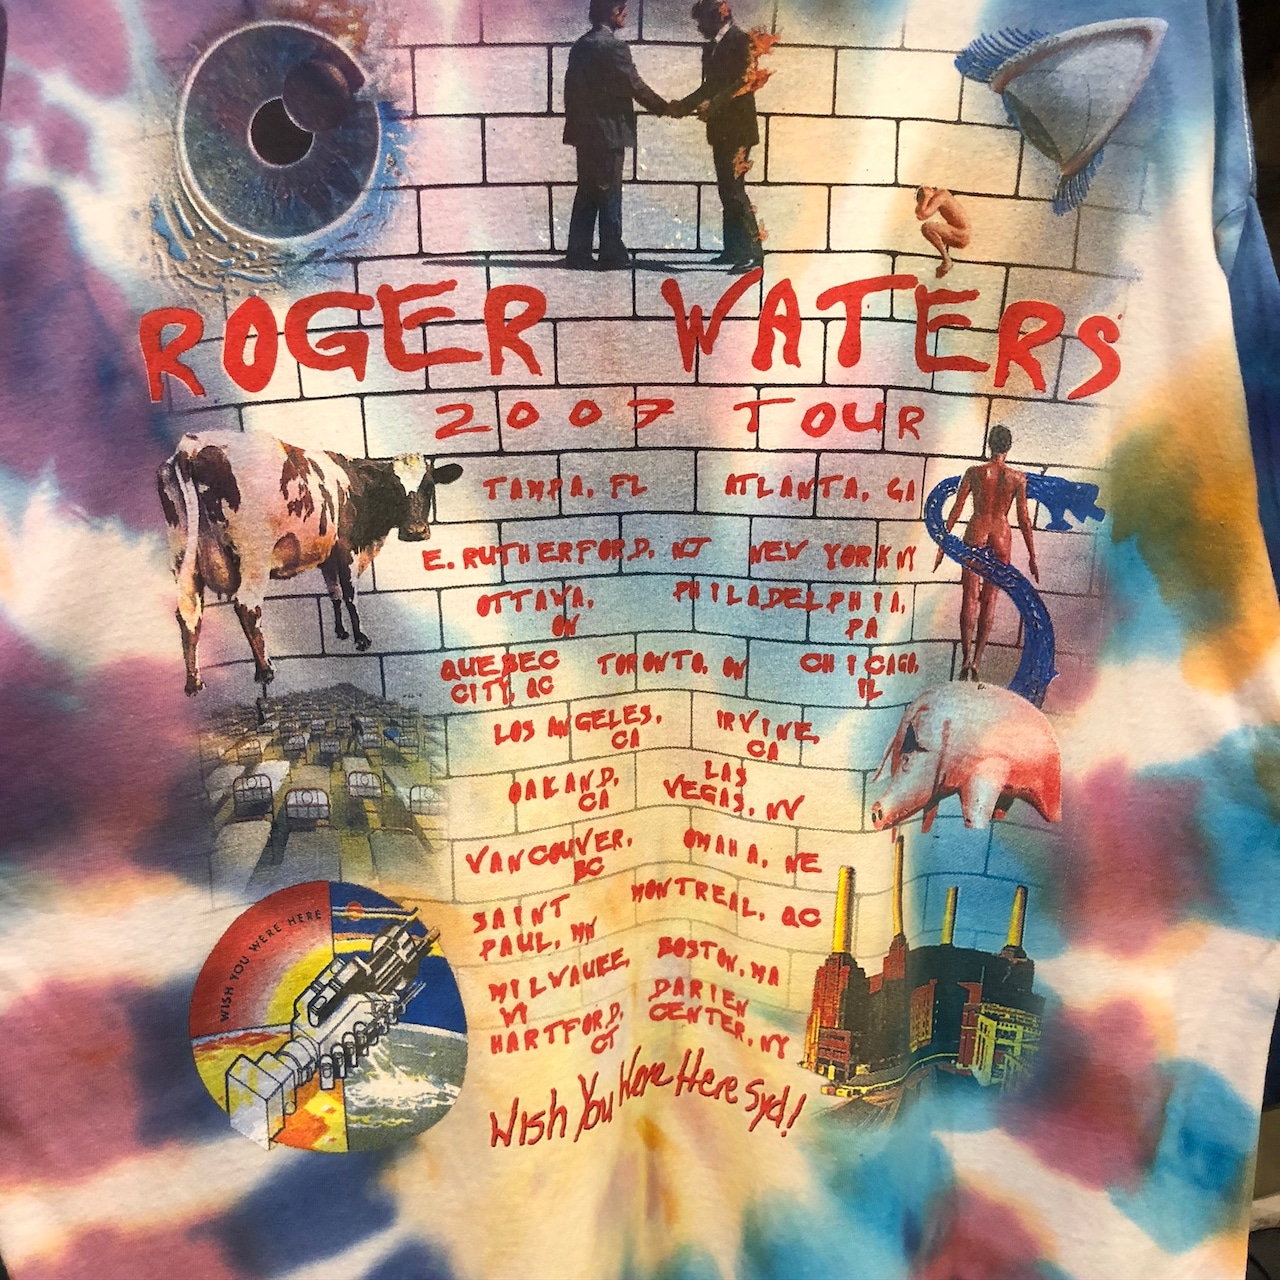 ROGER WATERS
2007 TOUR
TAMPA, FL ATLANTA, GA
E. RUTHERFORD, NJ NEW YORK NY
OTTAWA, ON PHILADELPHIA, PA
QUEBEC CITY, QC TORONTO, ON CHICAGO, IL
LOS ANGELES, CA IRVINE, CA
OAKAND, CA LAS VEGAS, NV
VANCOUVER, BC OMAHA, NE
SAINT PAUL, MN MONTREAL, QC
MILWAUEE, WI BOSTON, MA
HARTFORD, CT DARIEN CENTER, NY
Wish You Were Here Syd!
WISH YOU WERE HERE